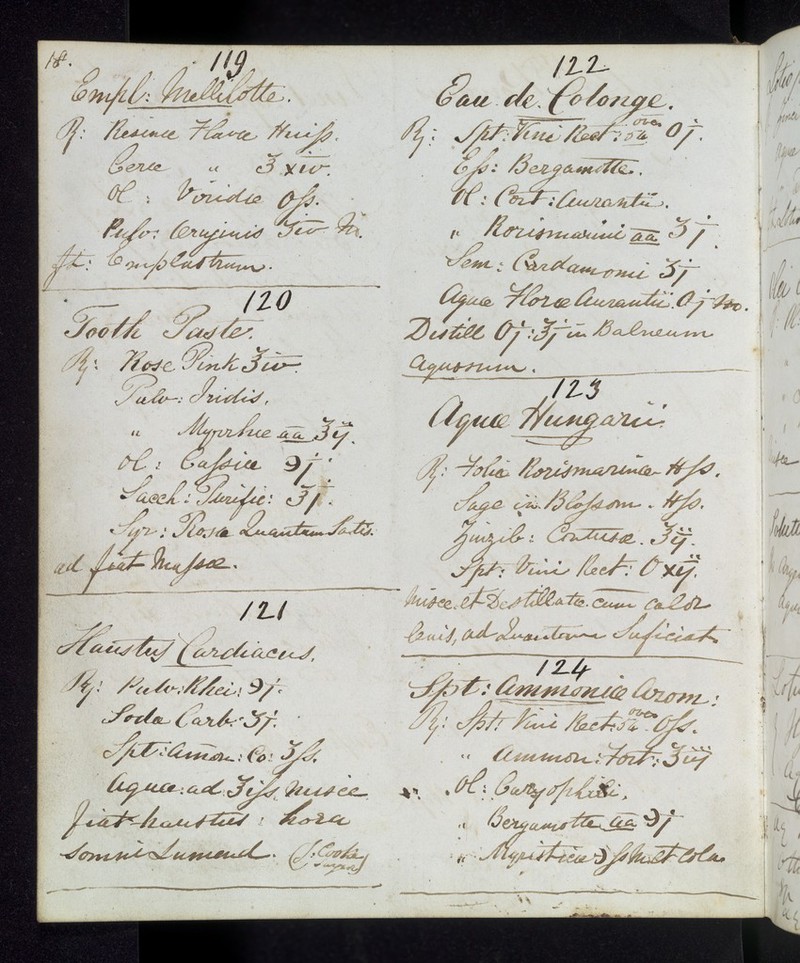 18.
119
Empl: Mellilotte.
℞: Resinæ Flavæ
Ceræ " ℥ xiv.
Ol: Viridæ O ſs.
Pulv: Æruginis ℥iv M.
ft: Emplastrum.
120
Tooth Paste.
℞: Rose Pink ℥iv.
Pulv: Iridis.
" Myrrhæ aa ℥ij.
Ol: Caſsiæ ℈j.
Sacch: Purific: ℥j.
Syr: Rosæ Quantum Satis.
ad fiat Maſsæ.
121
Haustus Cardiacus.
℞: Pulv: Rhei: ℈j.
Soda Carb: ʒj.
Spt: Amon: Co: ʒſs.
Aquæ: ad: ℥iſs misce
fiat haustus: hora
Somni Sumend. (J: Cooke
122
Eau de Colonge.
℞: Spt: Vini Rect: over Oj.
Eſs: Bergamotte.
Ol: Cort: Aurantii.
" Rorismarini aa ʒj.
Sem: Cardamomi ʒj
Aquæ Floræ Aurantii Oj m.
Distill Oj: ℥j in Balneum
Aquosum.
123
Aquæ Hungarii
℞: Folia Rorismarinæ ℔ſs.
Sage in Bloſsom. ℔ſs.
Zinzib: Contusæ. ℥ij.
Spt: Vini Rect: O xij.
Misce et Destillate cum calor
lenis, ad Quantum Suficiat
124
Spt: Ammoniæ Arom:
℞: Spt: Vini Rect: over Oſs.
" Ammon: Fort: ℥iij
Ol: Caryophilli.
" Bergamotte aa ℈j
" Myristicæ ℈ſs M et Cola